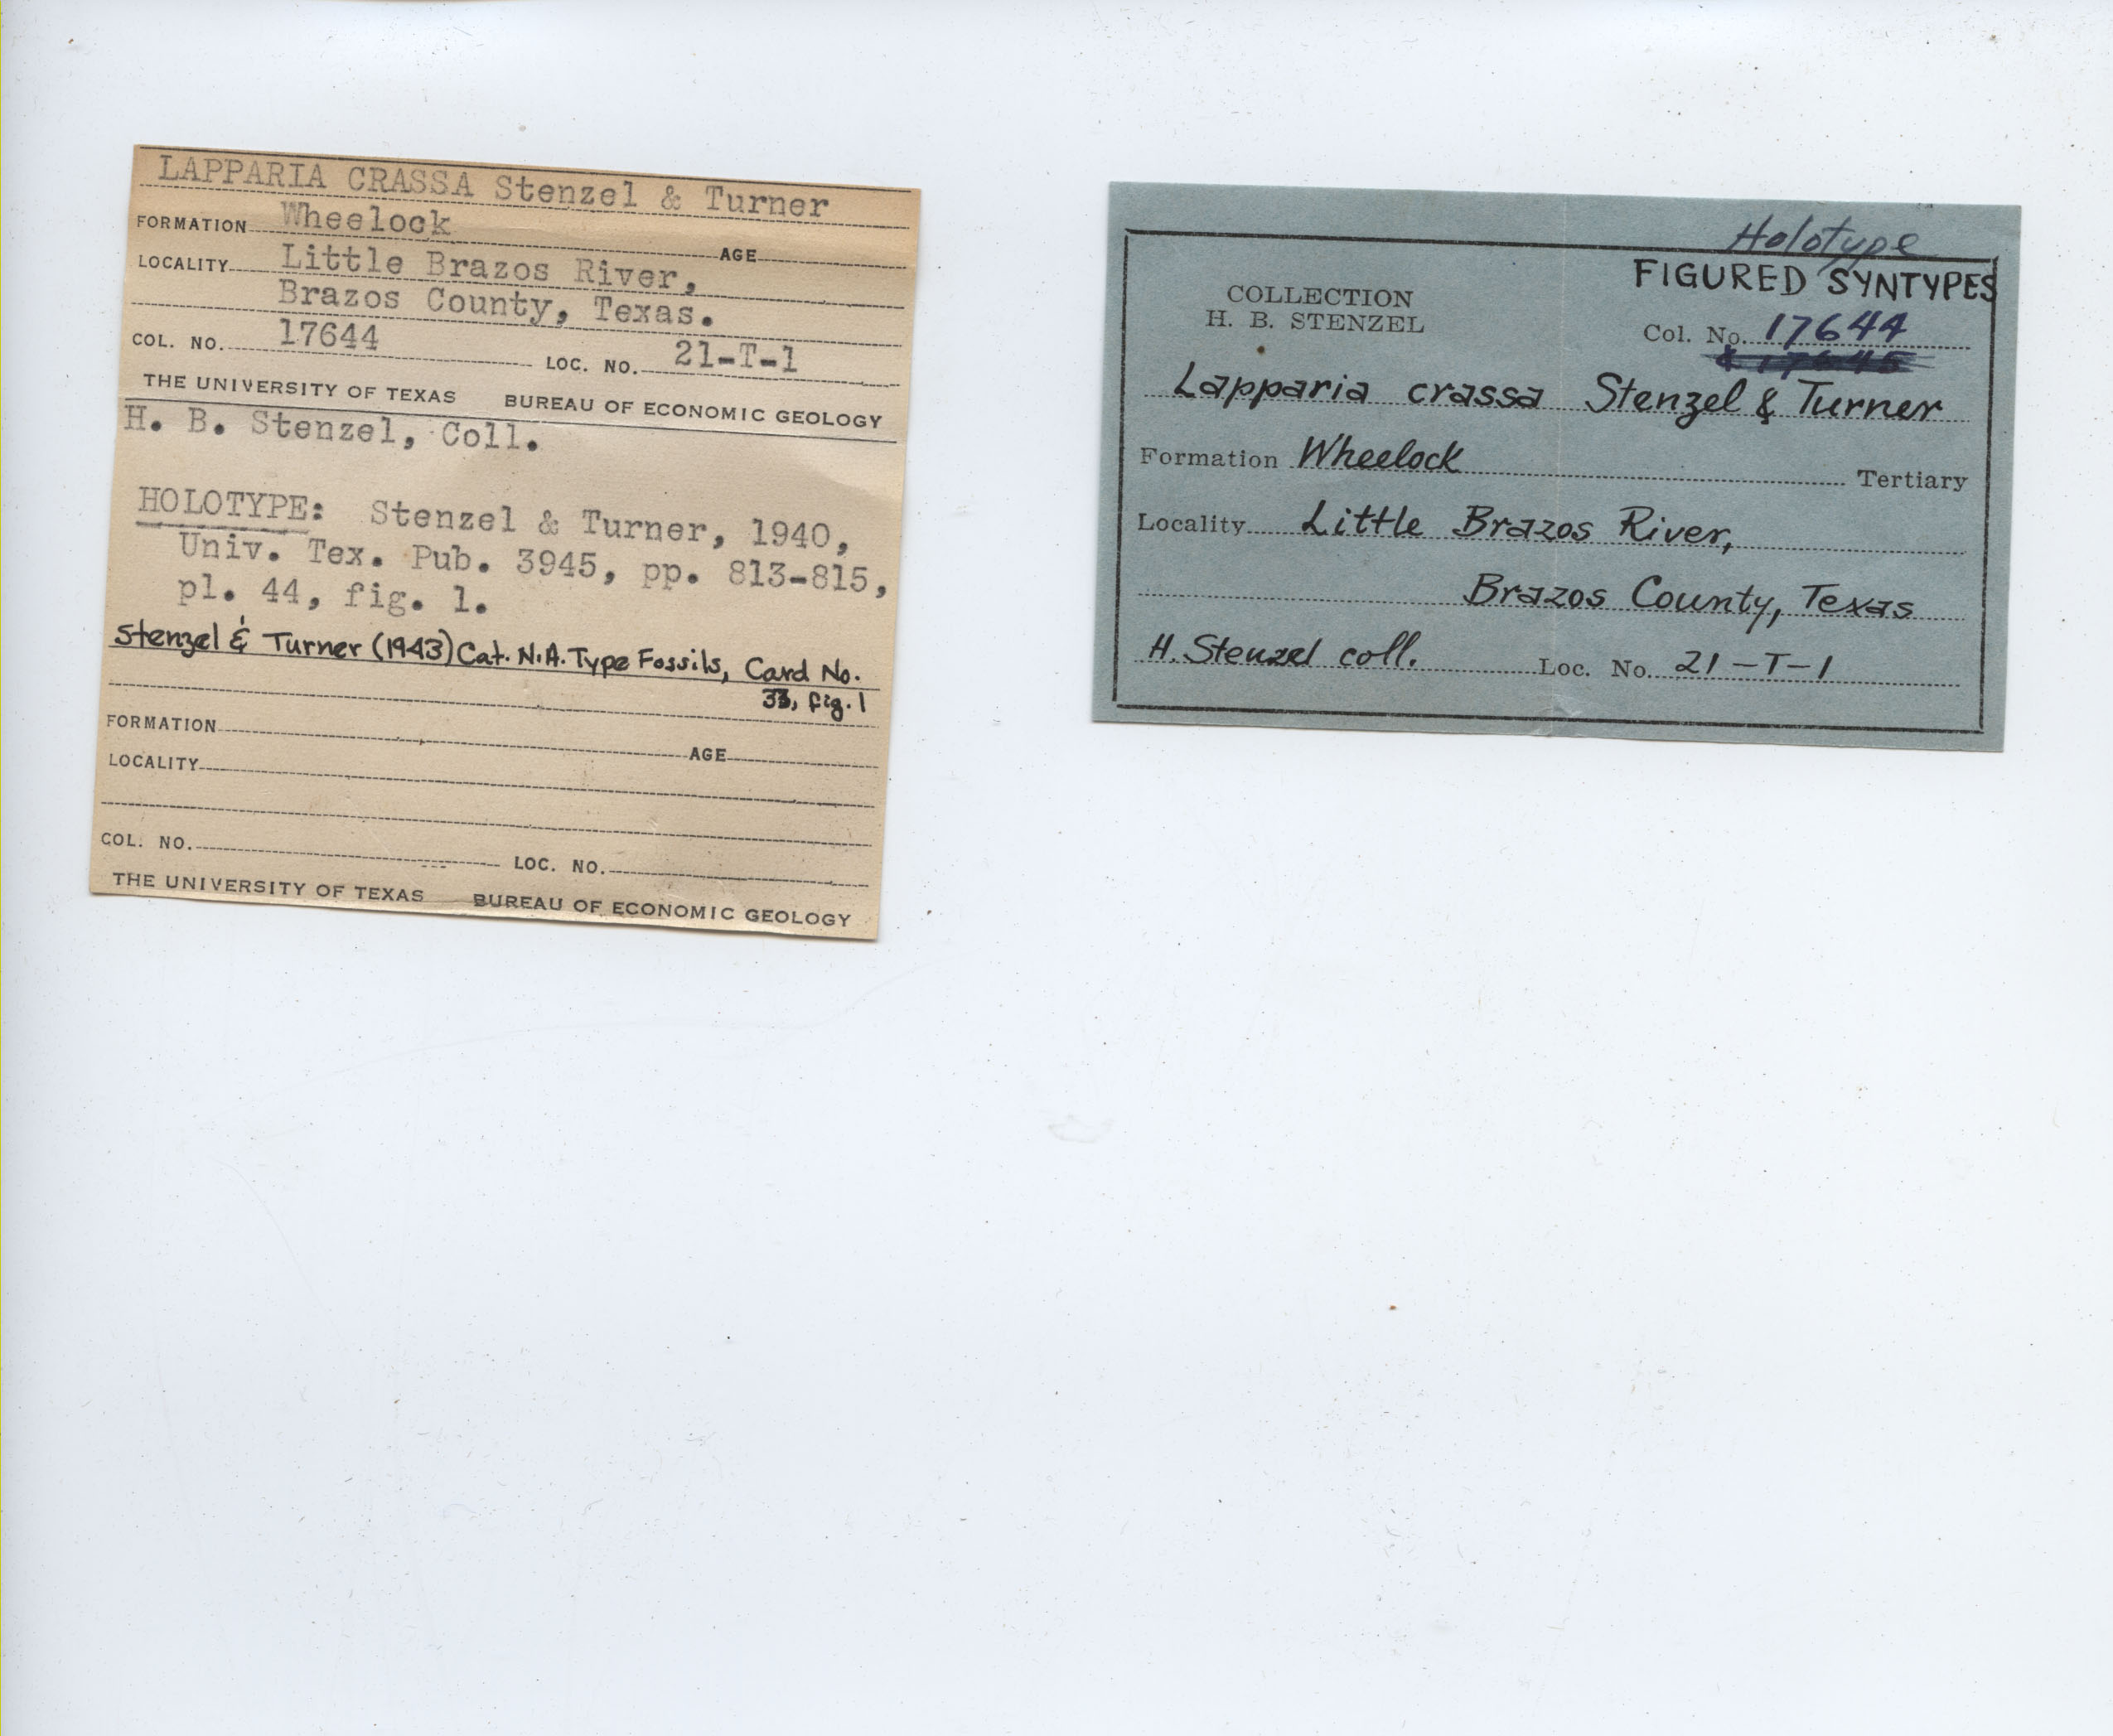 LAPPARIA CRASSA Stenzel & Turner
FORMATION Wheelock AGE
LOCALITY Little Brazos River,
Brazos County, Texas.
COL. NO. 17644 LOC. NO. 21-T-1
THE UNIVERSITY OF TEXAS BUREAU OF ECONOMIC GEOLOGY
H. B. Stenzel, Coll.
HOLOTYPE: Stenzel & Turner, 1940,
Univ. Tex. Pub. 3945, pp. 813-815,
pl. 44, fig. 1.
Stenzel & Turner (1943) Cat. N.A. Type Fossils, Card No.
33, fig. 1
FORMATION AGE
LOCALITY
COL. NO. LOC. NO.
THE UNIVERSITY OF TEXAS BUREAU OF ECONOMIC GEOLOGY
Holotype
FIGURED SYNTYPES
COLLECTION
H. B. STENZEL
Col. No. 17644
& 17645
Lapparia crassa Stenzel & Turner
Formation Wheelock Tertiary
Locality Little Brazos River,
Brazos County, Texas
H. Stenzel coll. Loc. No. 21-T-1